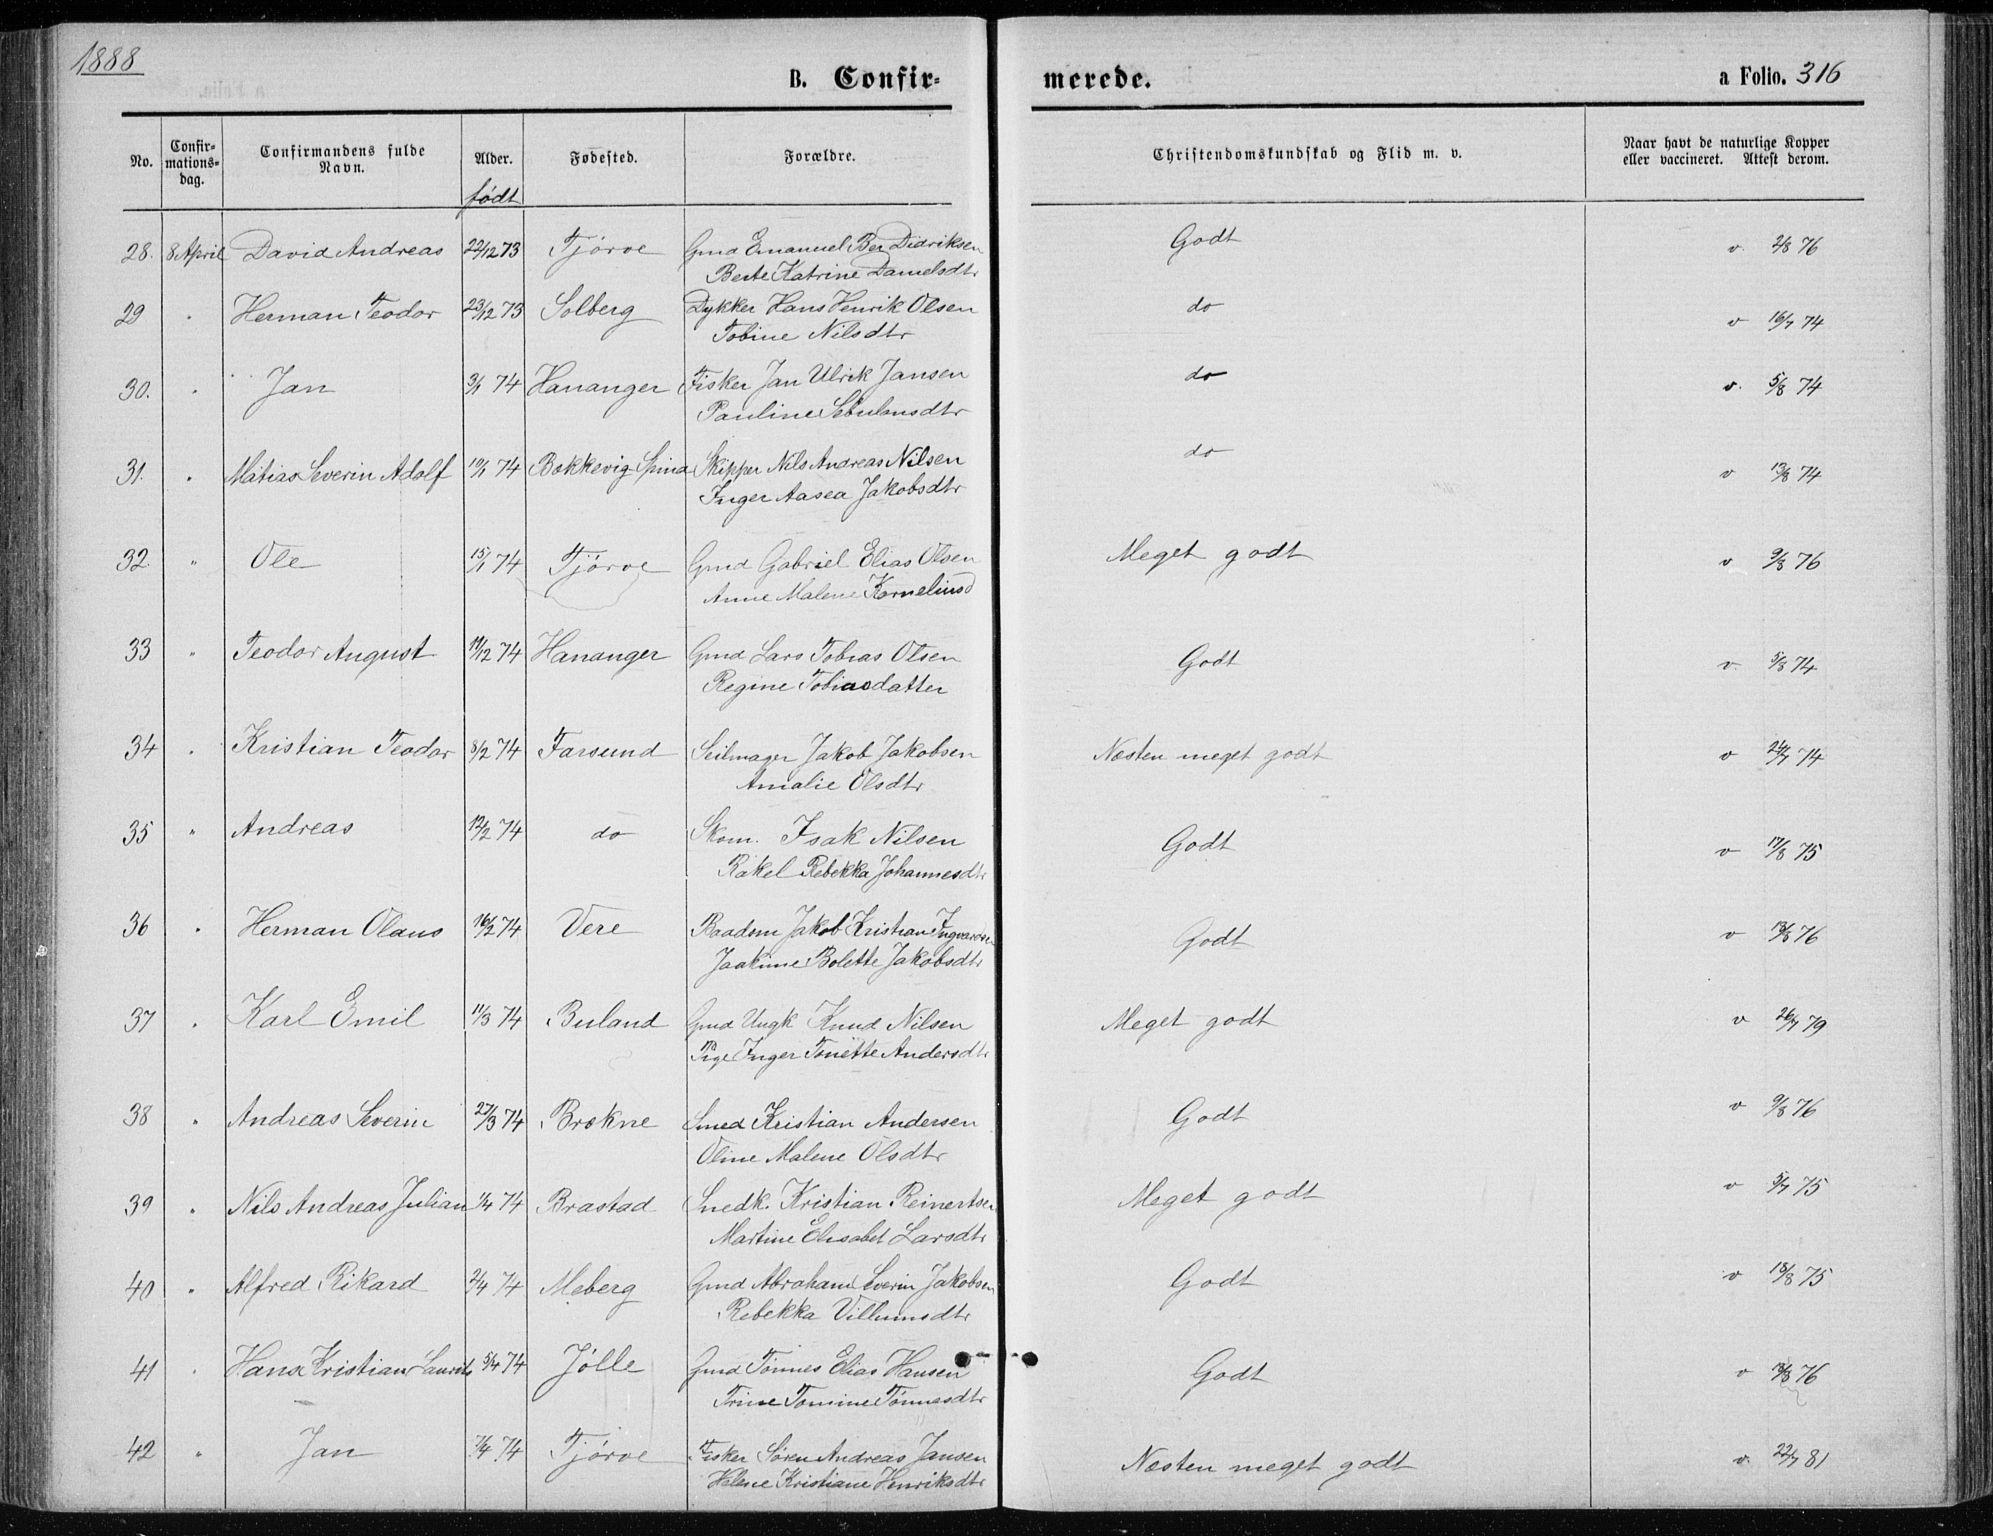 1888
B. Confir-
merede.
a Folio. 316
No.
Confir-
mations-
dag.
Confirmandens fulde
Navn.
Alder.
født
Fødested.
Forældre.
Christendomskundskab og Flid m. v.
Naar havt de naturlige Kopper
eller vaccineret. Attest derom.
28. 8 April David Andreas 22/12 73 Tjørve Gmd Emanuel Ber Didriksen Godt v. 2/8 76
Berte Katrine Danielsdtr
29 " Herman Teodor 23/12 73 Solberg Dykker Hans Henrik Olsen do v 16/7 74
Tobine Nilsdtr
30. " Jan 3/1 74 Hananger Fisker Jan Ulrik Jansen do v. 5/8 74
Pauline Sebulunsdtr
31. " Matias Severin Adolf 10/1 74 Bokkevig Spind Skipper Nils Andreas Nilsen do v 13/8 74
Inger Aasea Jakobsdtr
32. " Ole 15/1 74 Tjørve Gmd Gabriel Elias Olsen Meget godt v 9/8 76
Anne Malene Korneliusd
33 " Teodor August 74 Hananger Gmd Lars Tobias Olsen Godt v. 5/8 74
Regine Tobiasdatter
34 " Kristian Teodor 8/2 74 Farsund Seilmager Jakob Jakobsen Næsten meget godt v 24/7 74
Amalie Olsdtr
35 " Andreas 12/2 74 do Skom. Isak Nilsen Godt v 17/8 75
Rakel Rebekka Johannesdtr
36 " Herman Olaus 16/2 74 Vere Baadsm Jakob Kristian Ingvardsen Godt v 13/8 76
Joakime Bolette Jakobsdtr
37 " Karl Emil 11/3 74 Buland Gmd Ungk Knud Nilsen Meget godt v 26/7 79
Pige Inger Tonette Andersdtr
38 " Andreas Severin 27/3 74 Brekne Smed Kristian Andersen Godt v 9/8 76
Oline Malene Olsdtr
39 " Nils Andreas Julian 1/4 74 Brastad Snedk. Kristian Reinertsen Meget godt v 5/7 75
Martine Elisabet Larsdtr
40 " Alfred Rikard 2/4 74 Meberg Gmd Abraham Severin Jakobsen Godt v 18/8 75
Rebekka Villumsdtr
41 " Hans Kristian Laurits 5/4 74 Jølle Gmd Tønnes Elias Hansen Godt v 13/8 76
Trine Tomine Tønnesdtr
42 " Jan 7/4 74 Tjørve Fisker Søren Andreas Jansen Næsten meget godt v. 22/7 81
Helene Kristiane Henriksdtr